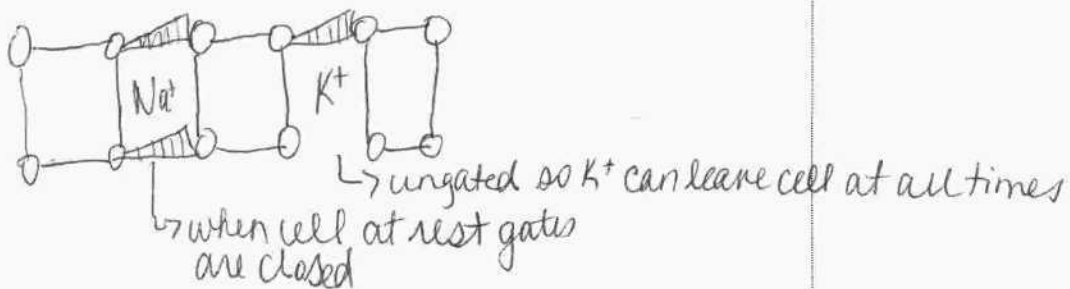 Na+ K+
↳ ungated so K+ can leave cell at all times
↳ when cell at rest gates
are closed